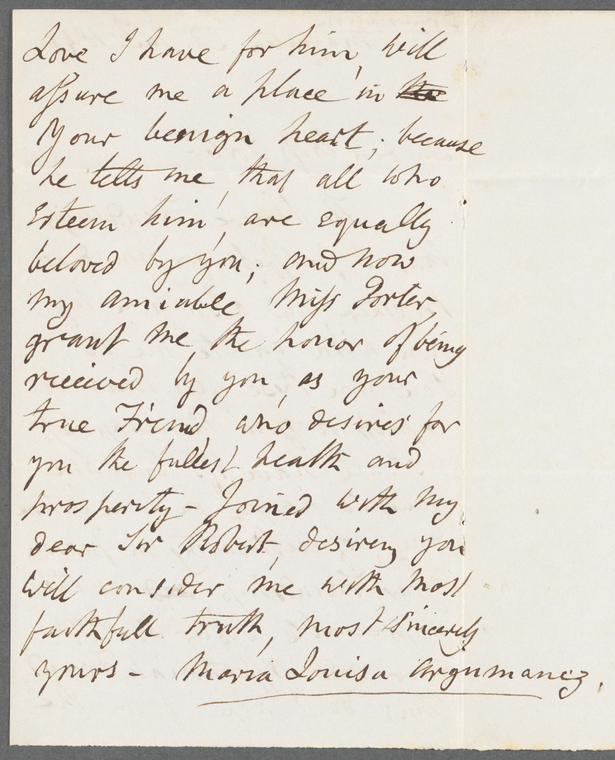 Love I have for him, will
assure me a place in the
Your benign heart; because
he tells me, that all who
Esteem him, are equally
beloved by you; and now
my amiable Miss Porter,
grant me the honor of being
received by you, as your
true Friend, who desires for
you the fullest health and
prosperity - Joined with my
dear Sir Robert, desiring you
will consider me with most
faithfull truth, most sincerely
yours - Maria Louisa Argumanez.